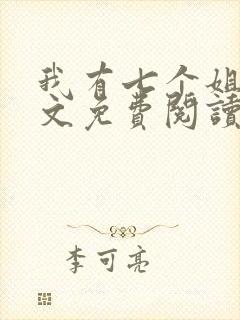 我有七个姐
文免費閱讀
李可亮